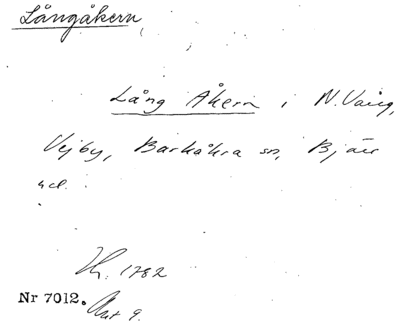 Långåkern
Lång Åkern i N. Vång,
Vejby, Barkåkra sn, Bjäre
hd.
Hr. 1782
Nr 7012. Akt 9.